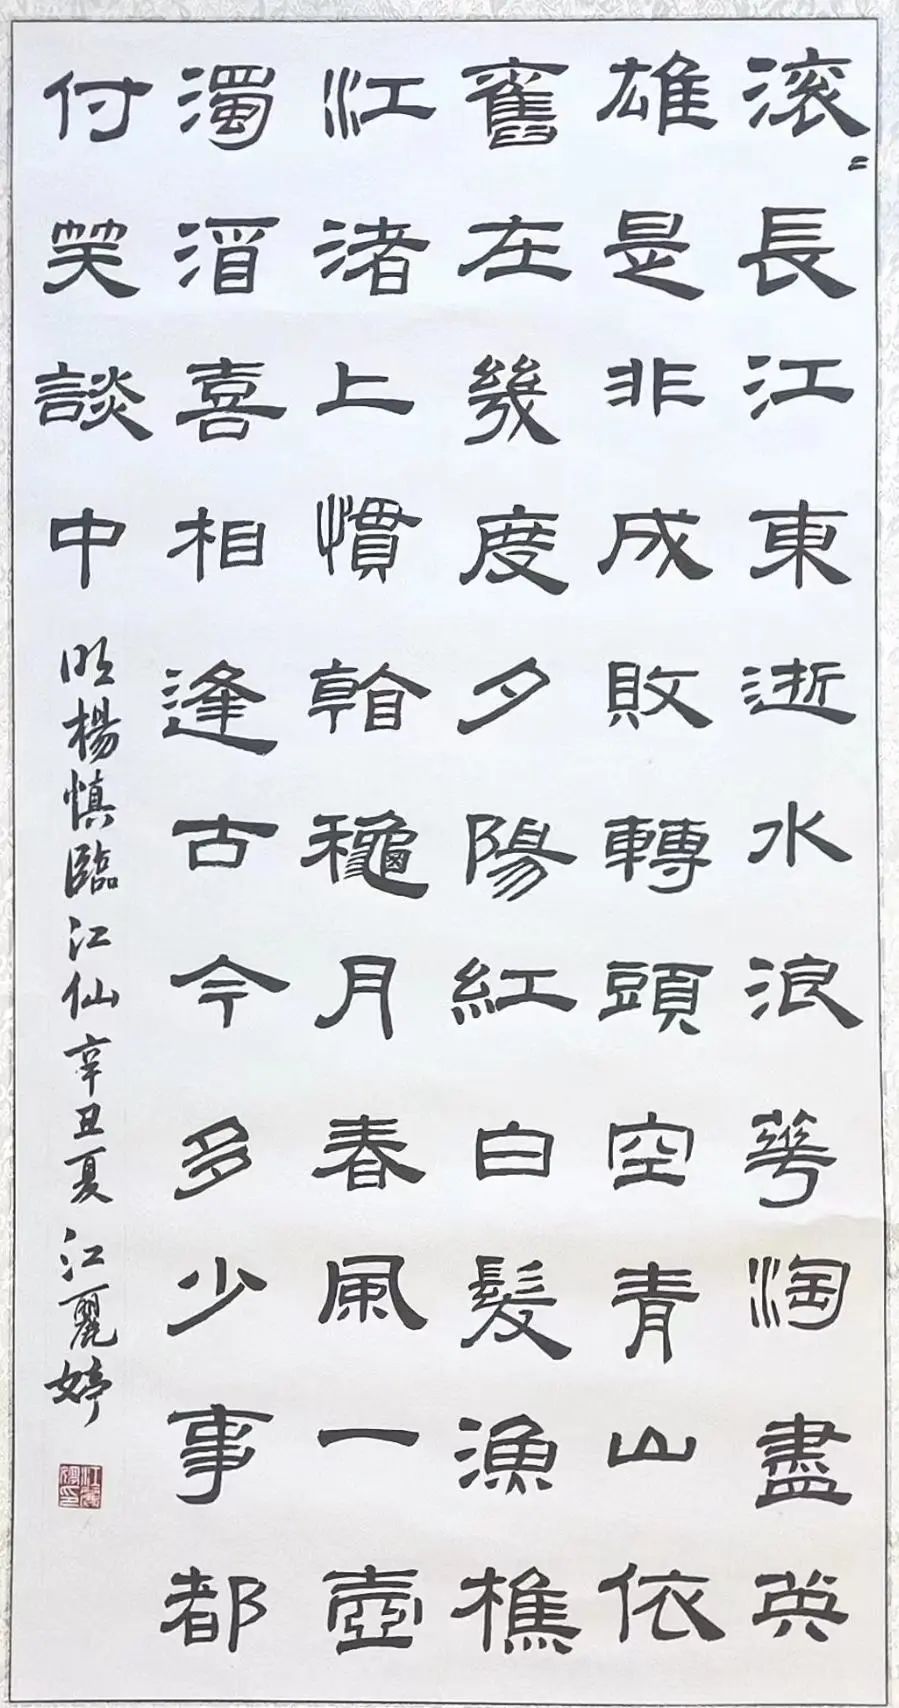 滚〻長江東逝水浪華淘盡英
雄是非成敗轉頭空青山依
舊在幾度夕陽紅白髮漁樵
江渚上慣看龝月春風一壺
濁酒喜相逢古今多少事都
付笑談中 明楊慎臨江仙 辛丑夏 江麗婷
江麗婷印